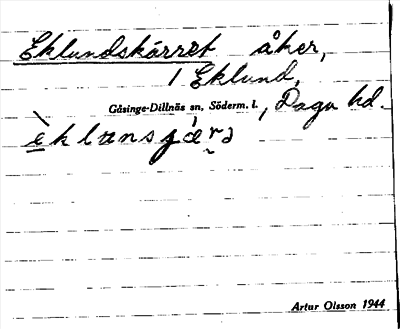 Eklundskärret åker,
1 Eklund,
Gåsinge-Dillnäs sn, Söderm. l., Daga hd.
èklansɟä́rə
Artur Olsson 1944